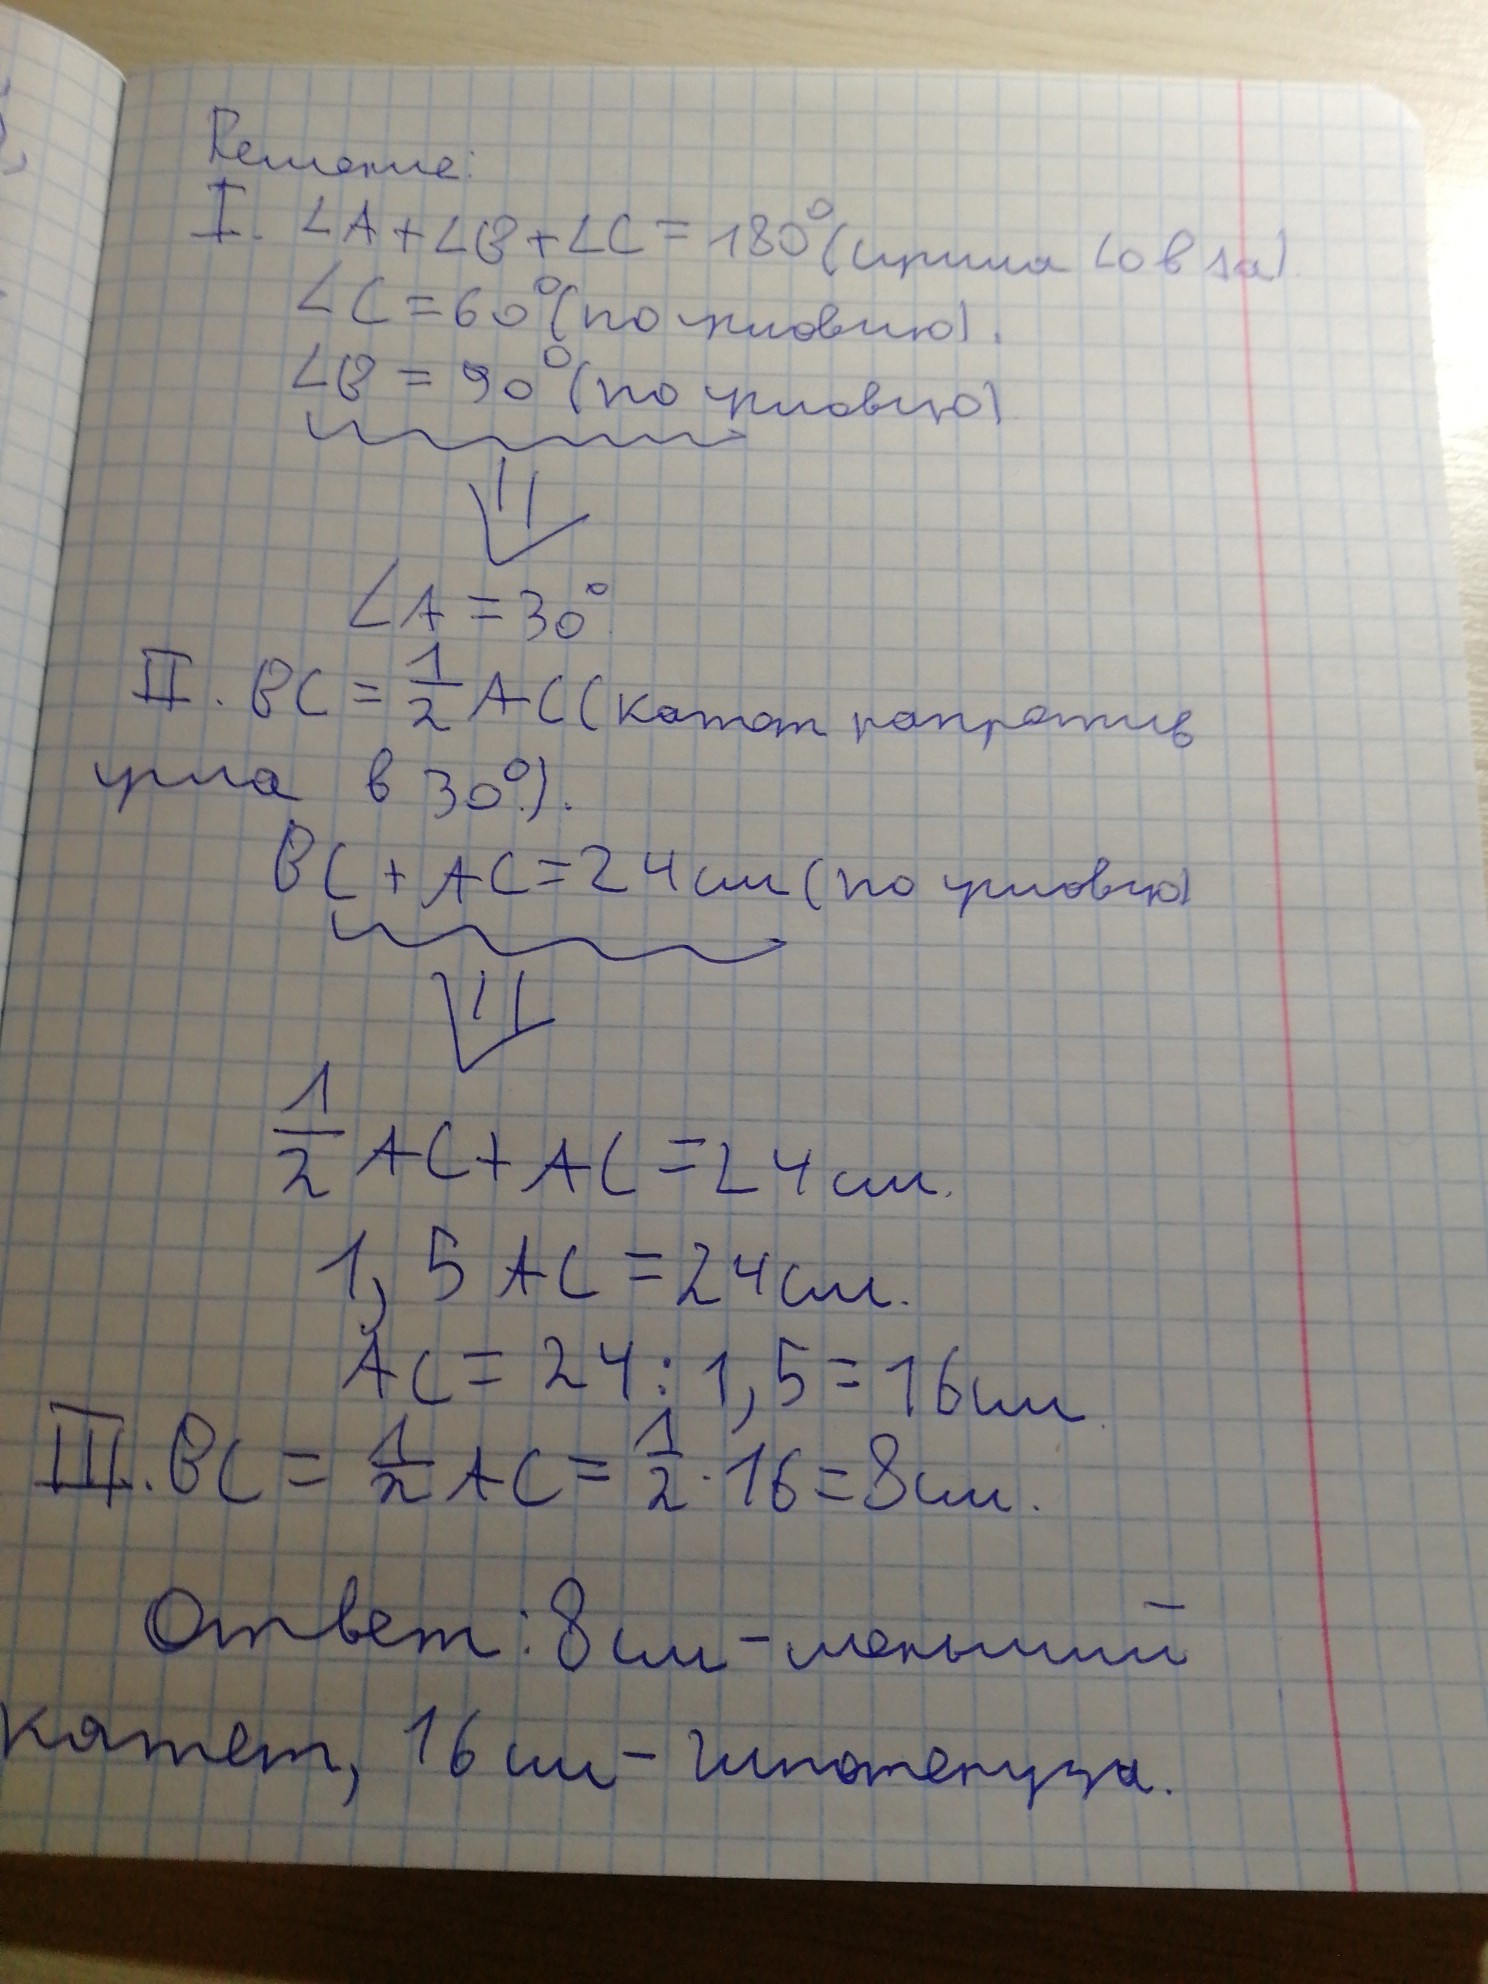 Решение:
I. ∠A+∠B+∠C=180°(сумма ∠ов Δа).
∠C=60°(по условию).
∠B=90°(по условию)
∠A=30°
II. BC=1/2 AC(катет напротив
угла в 30°).
BC+AC=24см(по условию)
1/2 AC+AC=24см.
1,5 AC=24см.
AC=24:1,5=16см.
III. BC=1/2 AC=1/2·16=8см.
Ответ: 8см-меньший
катет, 16см-гипотенуза.